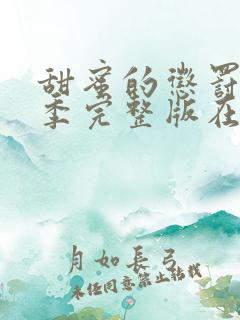 甜蜜的惩罚
季完整版在
月如長弓
未经同意禁止转载